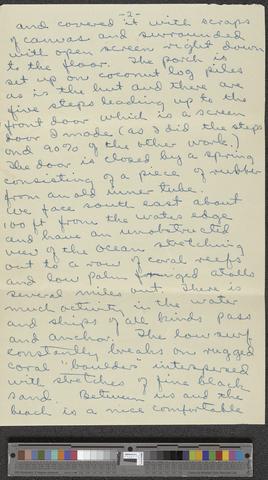 -2-
and covered it with scraps
of canvas and surrounded
with open screen right down
to the floor. The porch is
set up on coconut log piles
as is the hut and there are
five steps leading up to the
front door which is a screen
door I made (as I did the steps
and 90% of the other work.)
The door is closed by a spring
consisting of a piece of rubber
from an old inner tube.
We face south east about
100 ft from the waters edge
and have an unobstructed
view of the ocean stretching
out to a row of coral reefs
and low palm fringed atolls
several miles out. There is
much activity in the water
and ships of all kinds pass
and anchor. The low surf
constantly breaks on rugged
coral "boulders interspersed
with stretches of fine black
sand. Between us and the
beach is a nice comfortable